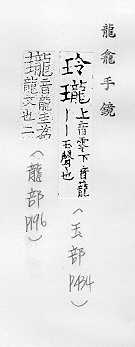 龍龕手鏡
玲瓏上音零下音龍
丨丨玉聲也
（玉部 P434）
音龍圭為
瓏龍文也二
（龍部 P196）